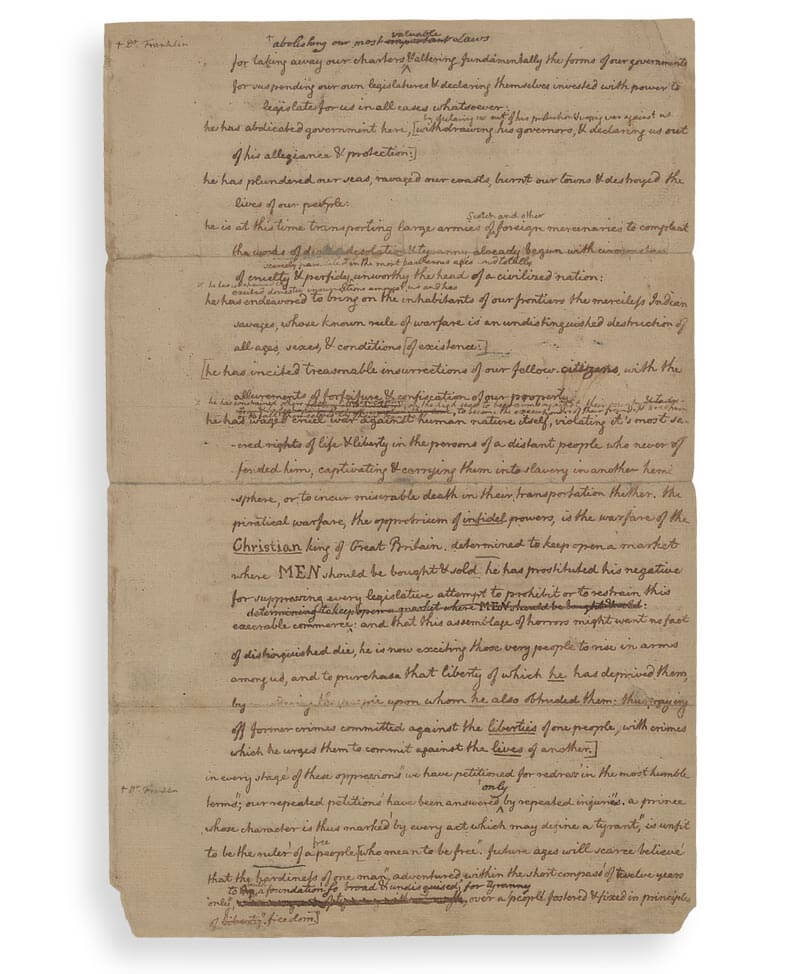 + Dr. Franklin
+abolishing our most important valuable Laws
for taking away our charters & altering fundamentally the forms of our governments
for suspending our own legislatures & declaring themselves invested with power to
legislate for us in all cases whatsoever:
by declaring us out of his protection & waging war against us
he has abdicated government here, [withdrawing his governors, & declaring us out
of his allegiance & protection:]
he has plundered our seas, ravaged our coasts, burnt our towns & destroyed the
lives of our people:
Scotch and other
he is at this time transporting large armies of foreign mercenaries to compleat
the works of death desolation & tyranny already begun with circumstances
scarcely paralleled in the most barbarous ages and totally
of cruelty & perfidy unworthy the head of a civilized nation:
excited domestic insurrections amongst us and has
he has endeavored to bring on the inhabitants of our frontiers the merciless Indian
savages, whose known rule of warfare is an undistinguished destruction of
all ages, sexes, & conditions [of existence:]
[he has incited treasonable insurrections of our fellow-citizens, with the
allurements of forfeiture & confiscation of our property:
he has constrained others taken captives on the high seas to bear arms against their country
to become the executioners of their friends & brethren
he has waged cruel war against human nature itself, violating it's most sa-
-cred rights of life & liberty in the persons of a distant people who never of
fended him, captivating & carrying them into slavery in another hemi
-sphere, or to incur miserable death in their transportation thither. this
piratical warfare, the opprobrium of infidel powers, is the warfare of the
Christian king of Great Britain. determined to keep open a market
where MEN should be bought & sold he has prostituted his negative
for suppressing every legislative attempt to prohibit or to restrain this
determining to keep open a market where MEN should be bought & sold:
execrable commerce: and that this assemblage of horrors might want no fact
of distinguished die, he is now exciting those very people to rise in arms
among us, and to purchase that liberty of which he has deprived them,
by murdering the people upon whom he also obtruded them: thus paying
off former crimes committed against the liberties of one people, with crimes
which he urges them to commit against the lives of another.]
in every stage of these oppressions we have petitioned for redress in the most humble
only
+ Dr. Franklin
terms; our repeated petitions have been answered by repeated injuries. a prince
whose character is thus marked by every act which may define a tyrant, is unfit
free
to be the ruler of a people [who mean to be free. future ages will scarce believe
that the hardiness of one man, adventured within the short compass of twelve years
to lay a foundation so broad & undisguised, for tyranny
only, over a people fostered & fixed in principles
of liberty. freedom.]